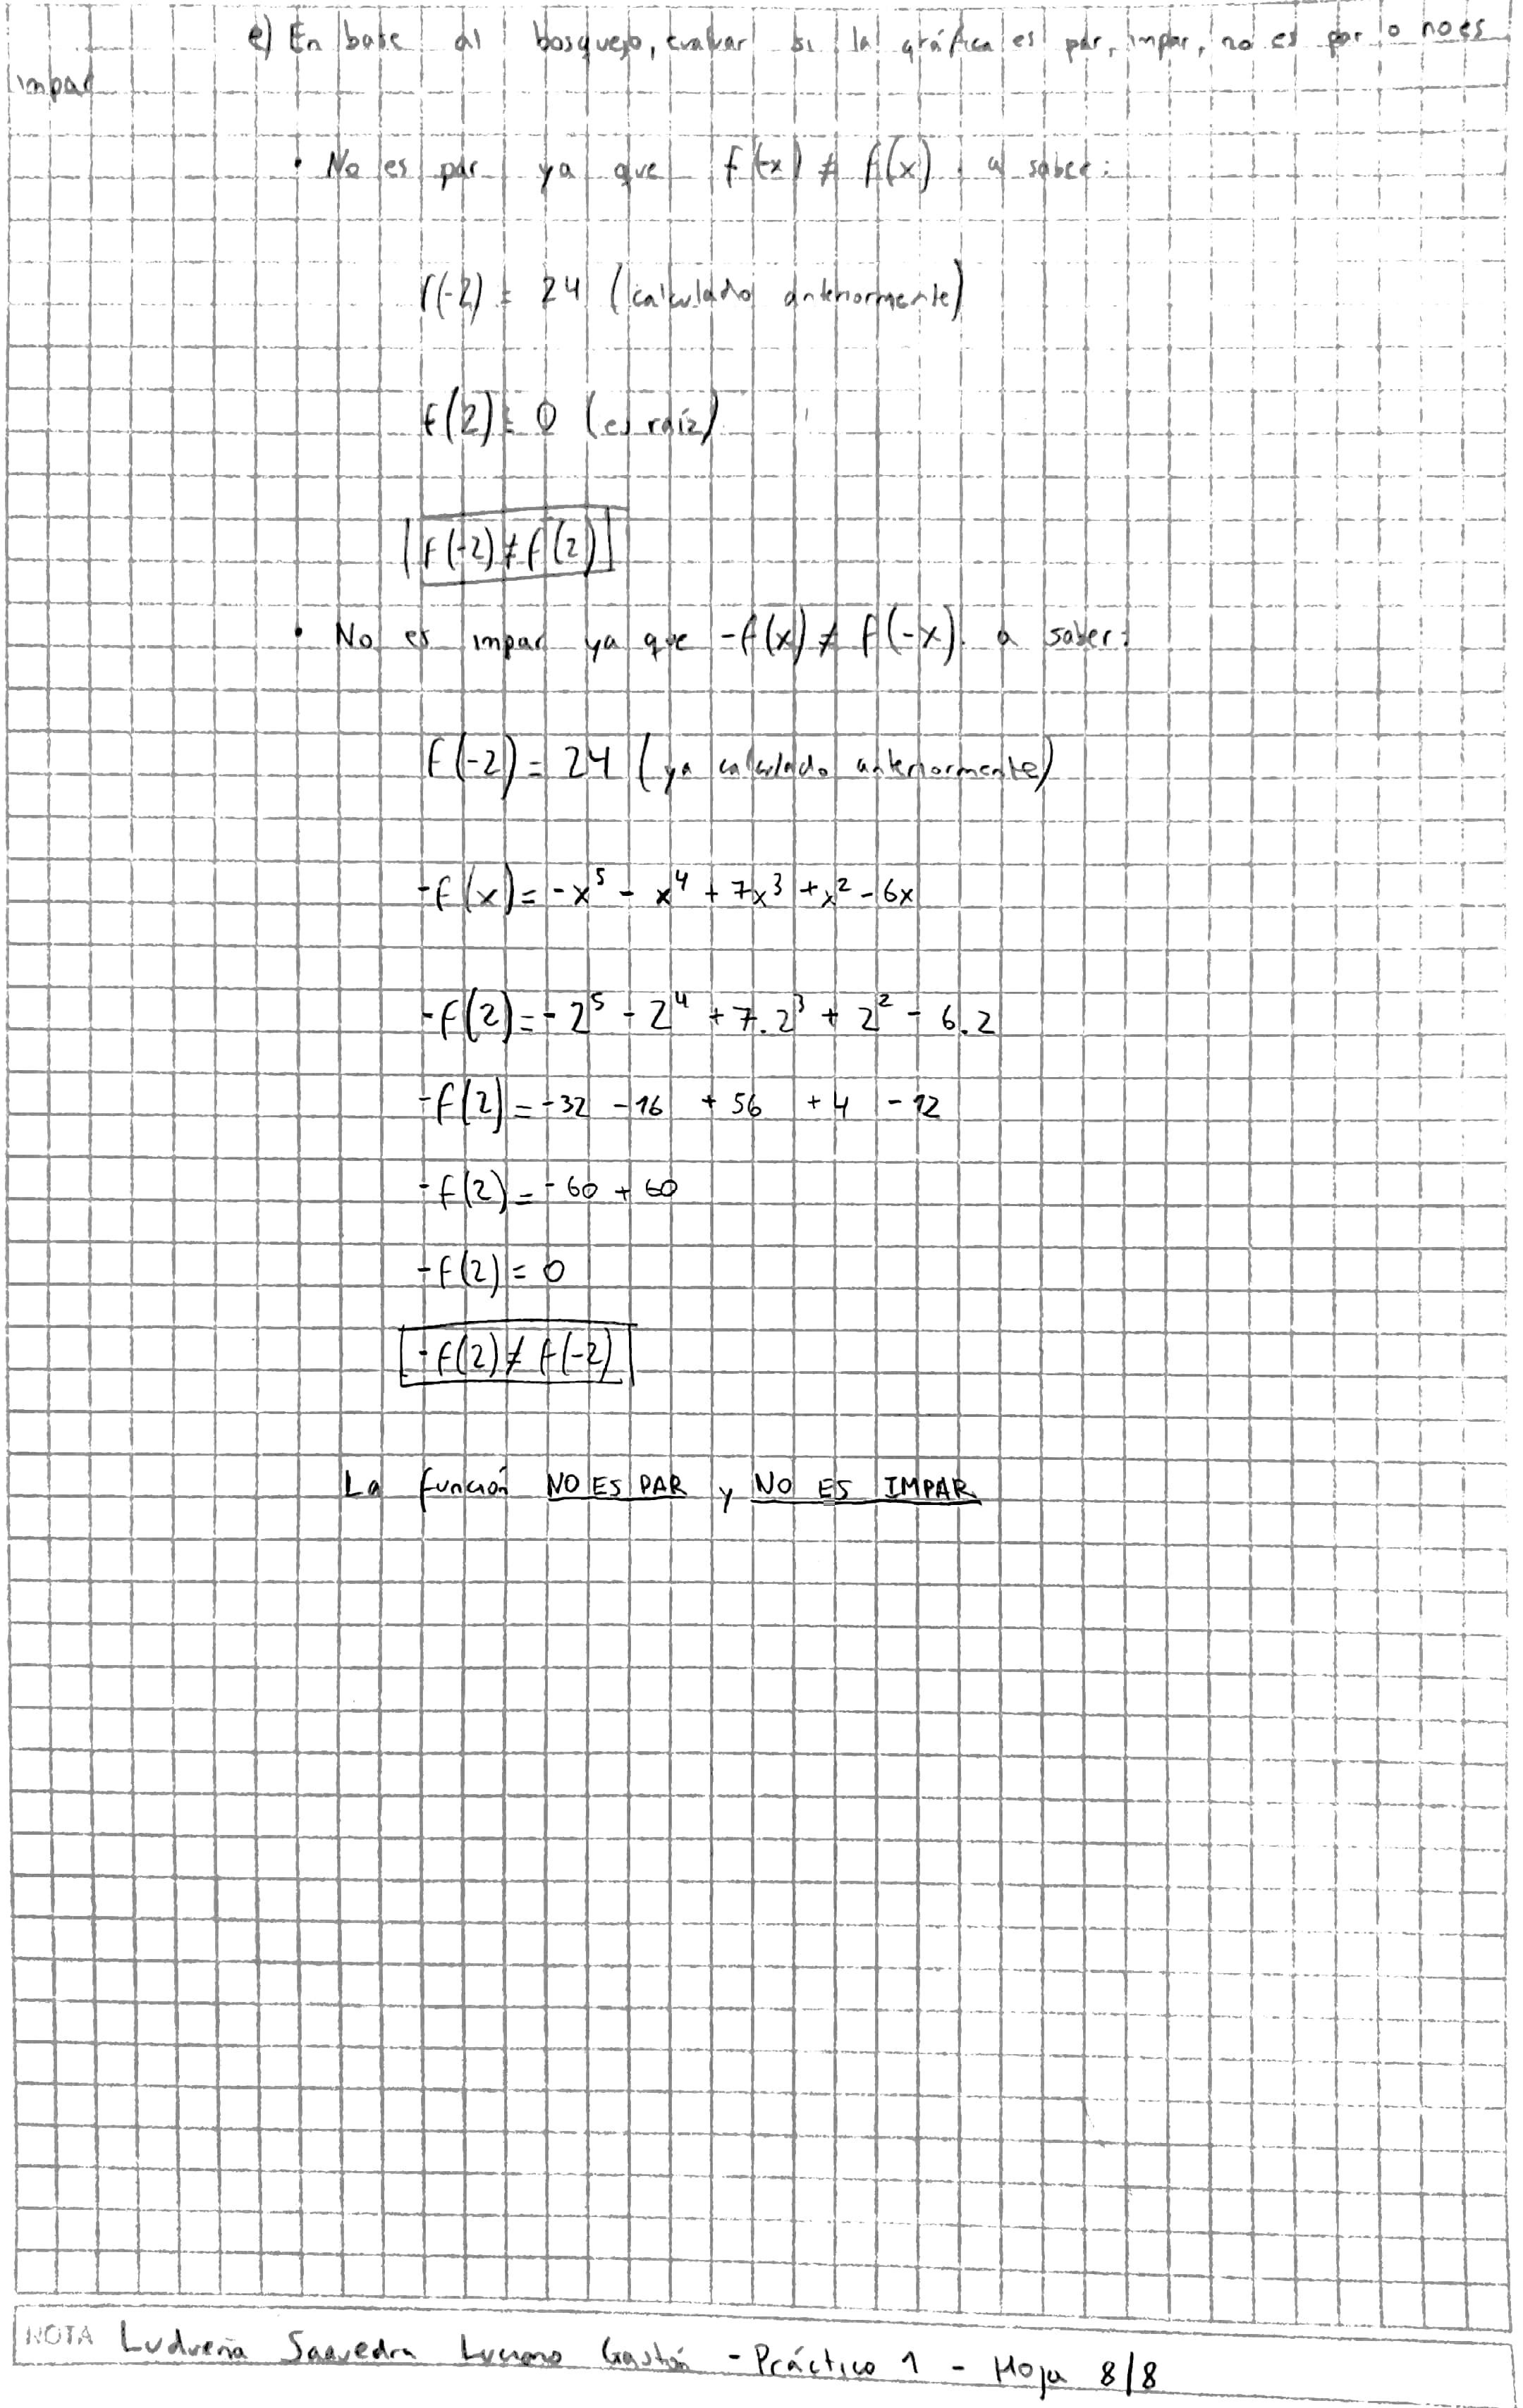 e) En base al bosquejo, evaluar si la gráfica es par, impar, no es par o no es
impar
• No es par ya que f(-x) ≠ f(x). a saber:
f(-2) = 24 (calculado anteriormente)
f(2) = 0 (es raíz)
f(-2) ≠ f(2)
• No es impar ya que -f(x) ≠ f(-x). a saber:
f(-2) = 24 (ya calculado anteriormente)
-f(x) = -x⁵ - x⁴ + 7x³ + x² - 6x
-f(2) = -2⁵ - 2⁴ + 7.2³ + 2² - 6.2
-f(2) = -32 - 16 + 56 + 4 - 12
-f(2) = -60 + 60
-f(2) = 0
-f(2) ≠ f(-2)
La función NO ES PAR y NO ES IMPAR
NOTA Ludueña Saavedra Luciano Gastón - Práctico 1 - Hoja 8/8